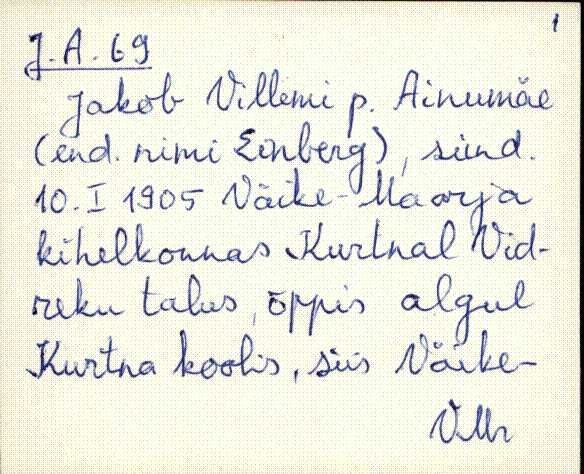 1
J. A. 69
Jakob Villemi p. Ainumäe
(end. nimi Einberg), sünd.
10. I 1905 Väike-Maarja
kihelkonnas Kurtnal Vid-
reku talus, õppis algul
Kurtna koolis, siis Väike-